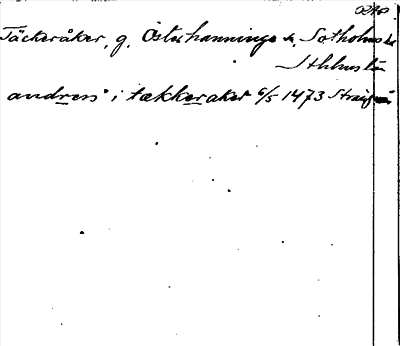 Täckeråker, g. Österhanninge s., Sotholms hd
Sthlms län
andres i tækkeraker 6/5 1473